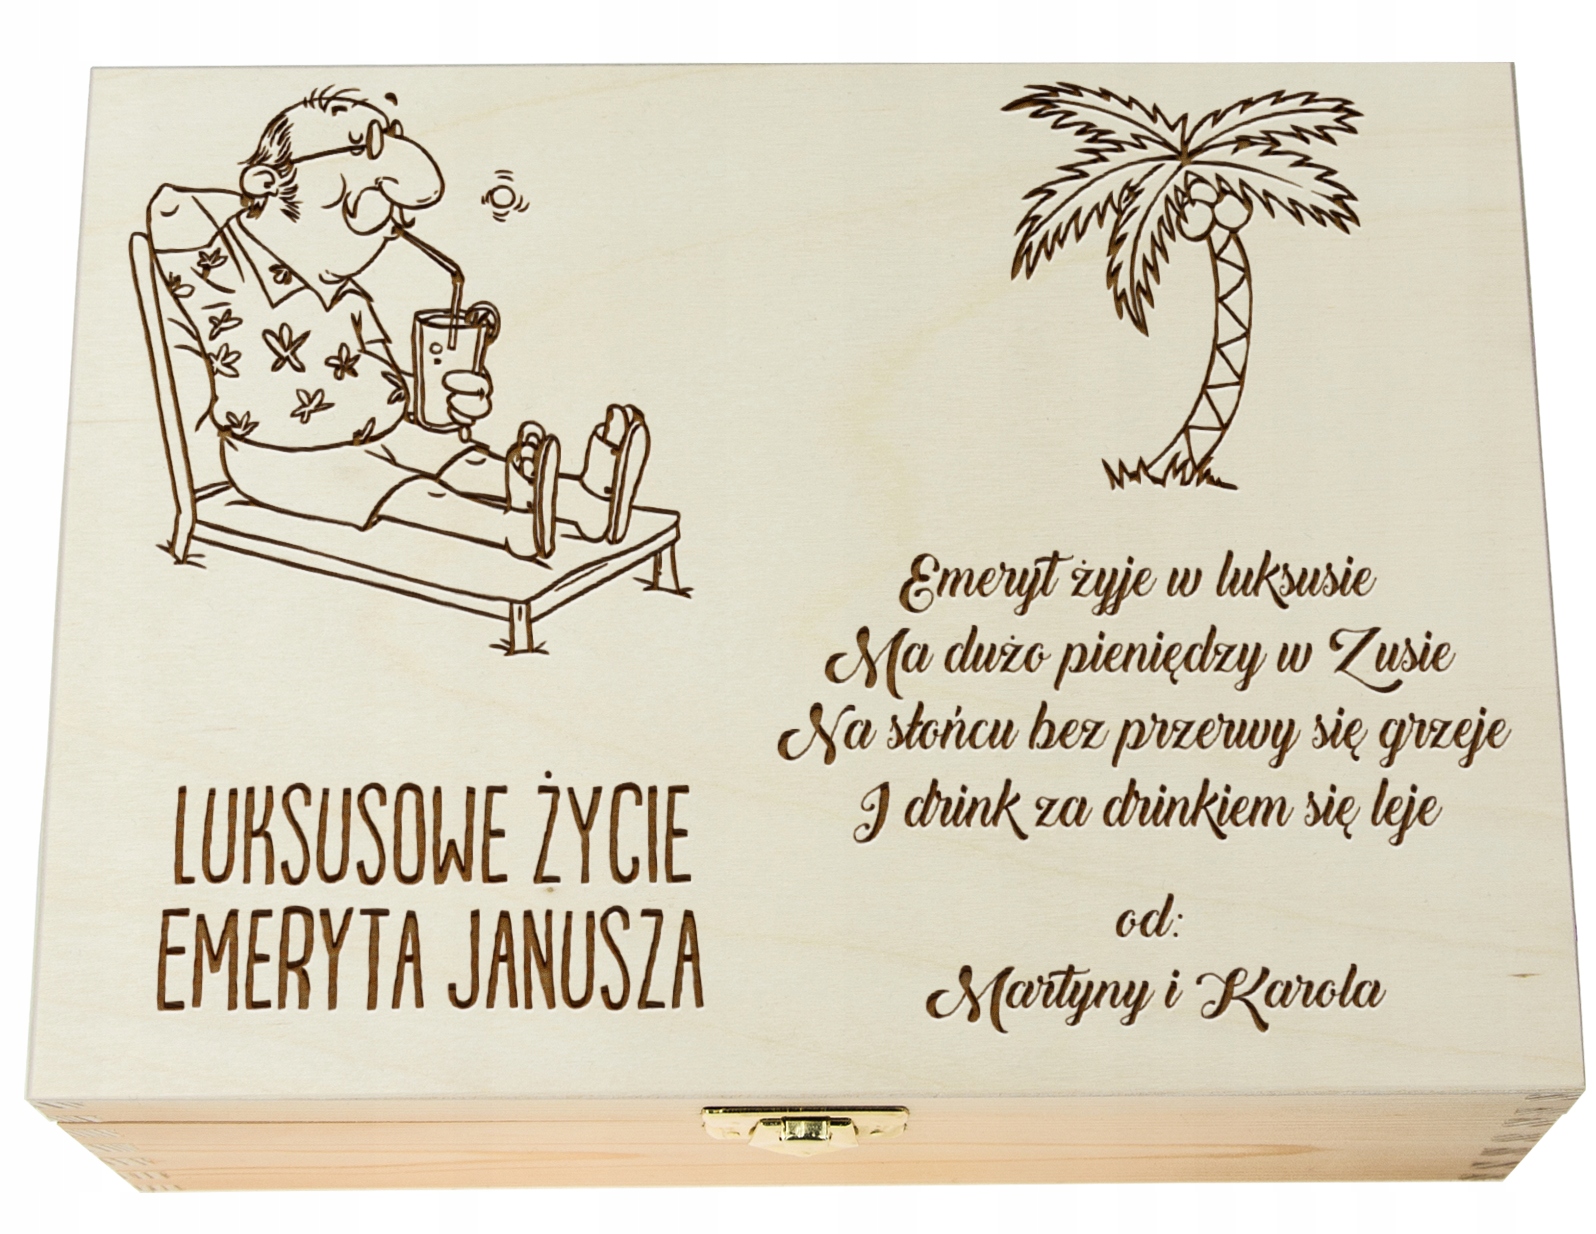 LUKSUSOWE ŻYCIE
EMERYTA JANUSZA
Emeryt żyje w luksusie
Ma dużo pieniędzy w Zusie
Na słońcu bez przerwy się grzeje
I drink za drinkiem się leje
od:
Martyny i Karola